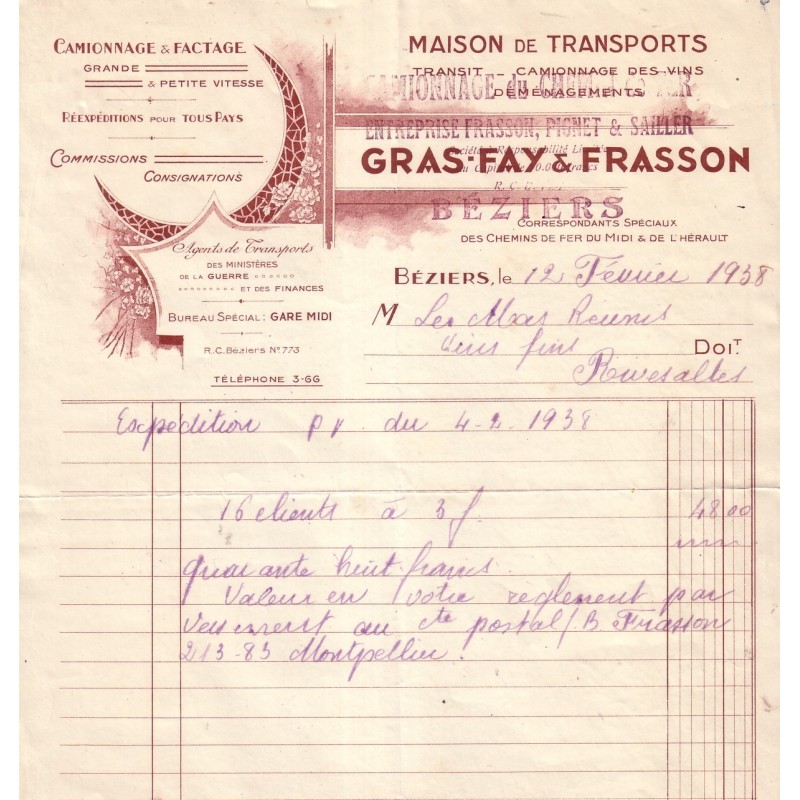 CAMIONNAGE & FACTAGE
GRANDE
& PETITE VITESSE
RÉEXPÉDITIONS POUR TOUS PAYS
COMMISSIONS
CONSIGNATIONS
Agents de Transports
DES MINISTÈRES
DE LA GUERRE
ET DES FINANCES
BUREAU SPÉCIAL: GARE MIDI
R.C. Béziers Nº 773
TÉLÉPHONE 3-66
MAISON DE TRANSPORTS
TRANSIT - CAMIONNAGE DES VINS
DÉMÉNAGEMENTS
CAMIONNAGE du CHEMIN DE FER
ENTREPRISE FRASSON, PIGNET & SAILLER
Société à Responsabilité Limitée
GRAS-FAY & FRASSON
au Capital de
R.C.
BÉZIERS
CORRESPONDANTS SPÉCIAUX
DES CHEMINS DE FER DU MIDI & DE L'HÉRAULT
BÉZIERS, le 12 Février 1938
M Les Mxes Réunis
Vins fins DOIT
Rivesaltes
Expédition pv du 4-2-1938
16 clients à 3 f. 48 00
quarante huit francs.
Valeur en votre règlement par
versement au cte postal / B Frasson
213-83 Montpellier.